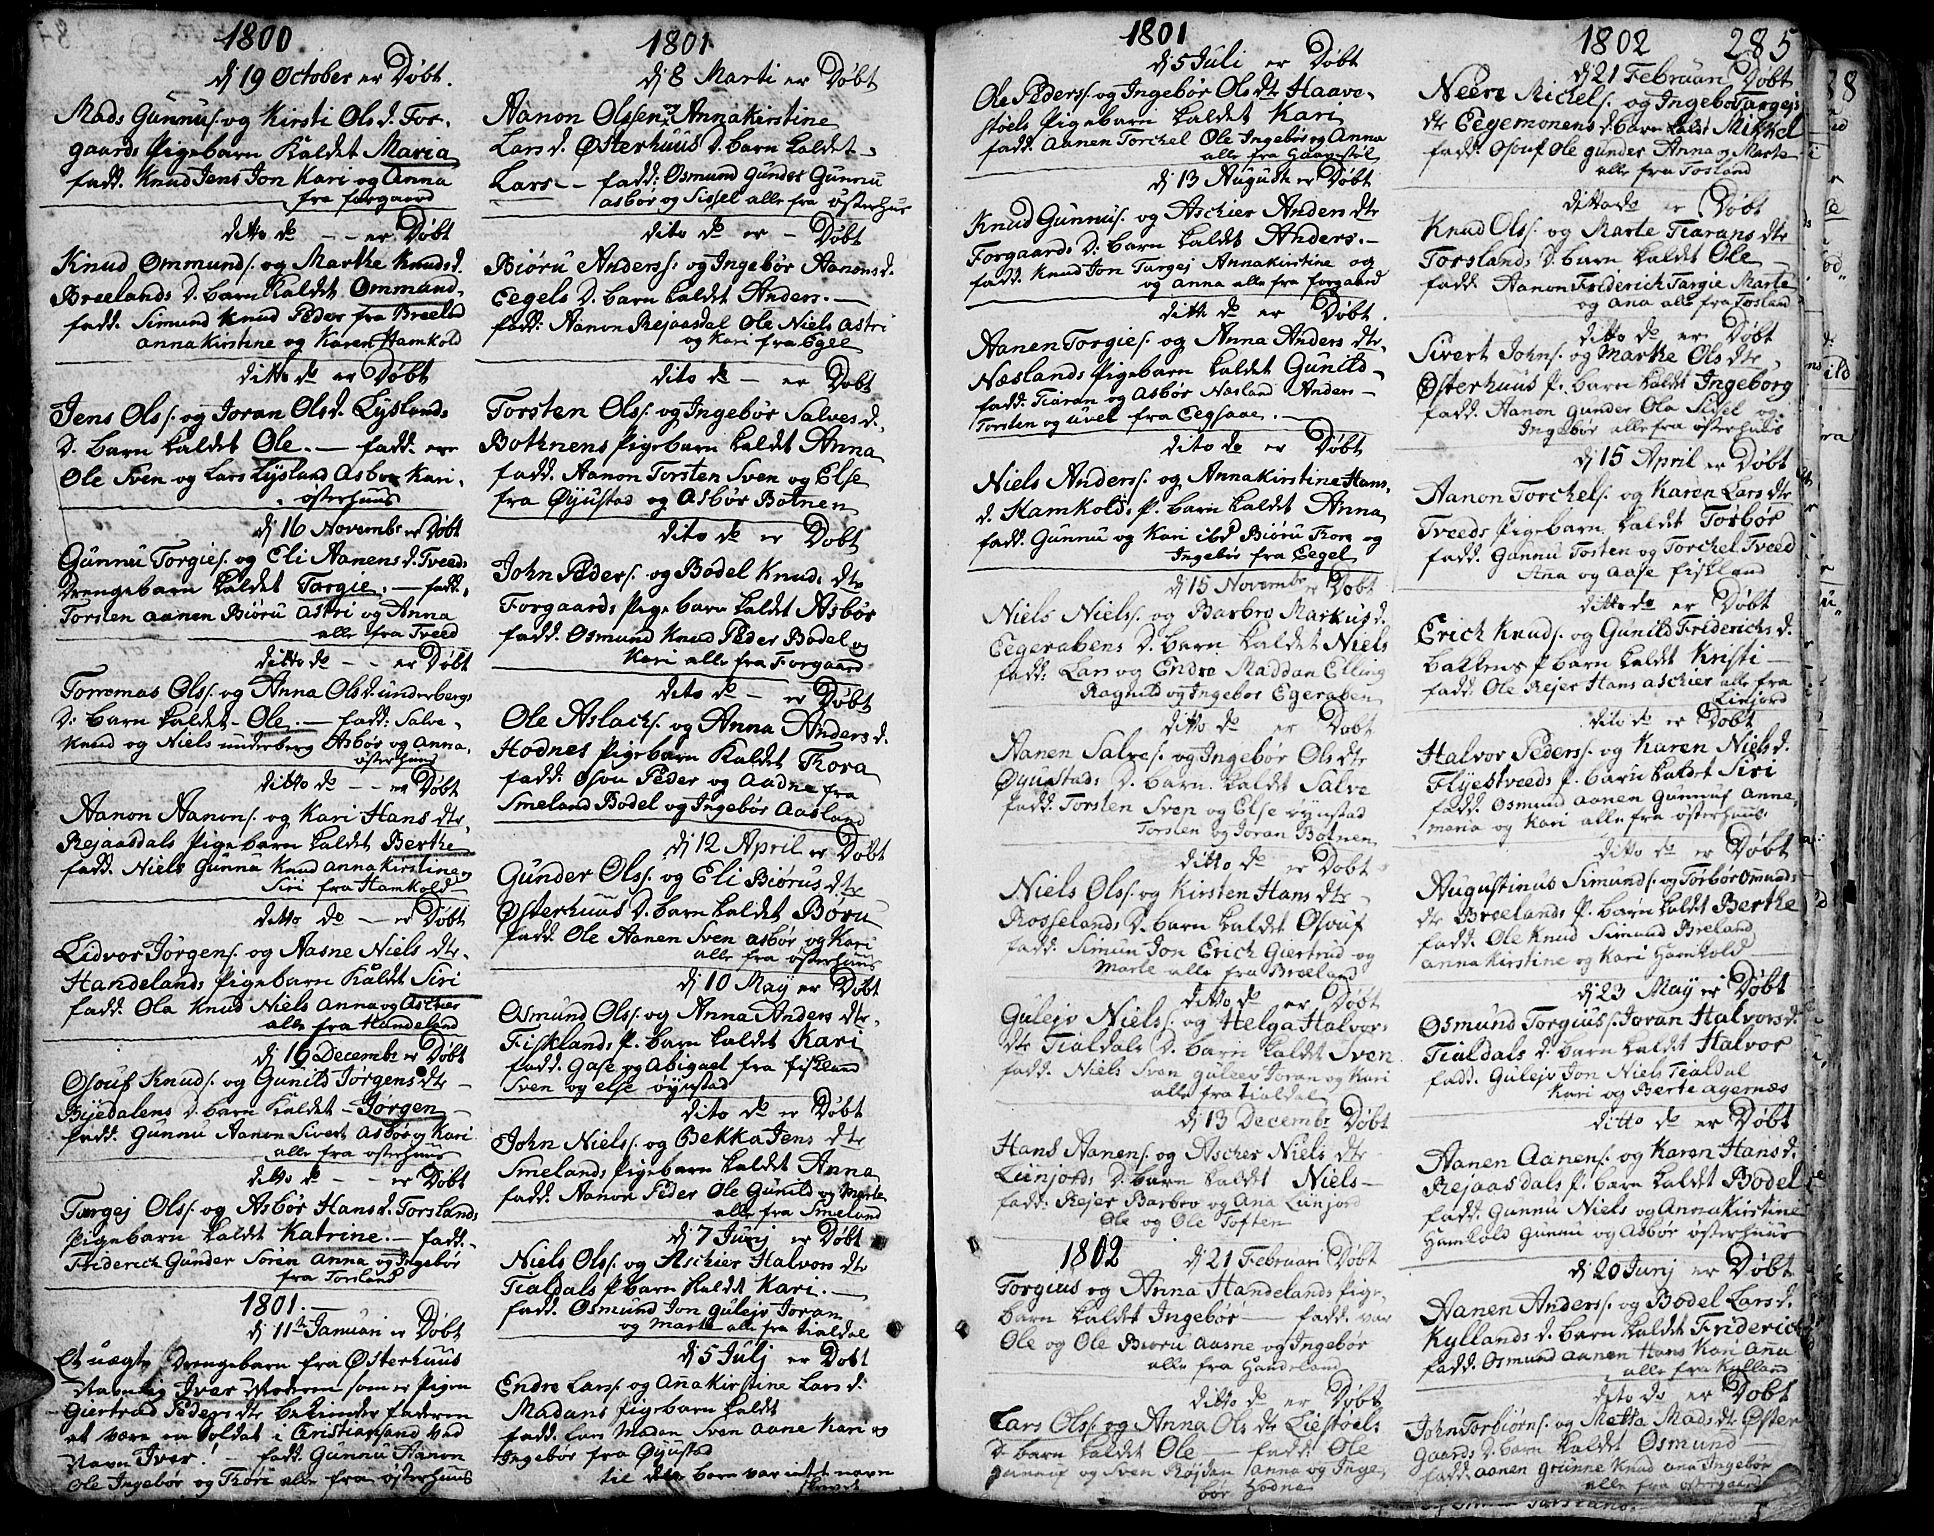 1800
dj 19 October er Døbt.
Mads Gunnus. og Kirsti Ols d. For-
gaards Pigebarn Kaldet Maria
fadd. Knud Jens Jon Kari og Anna
fra forgaard
ditto do - - er Døbt
Knud Ommunds. og Marthe Knuds d.
Breelands D. barn Kaldet Ommund.
fadd. Simund Knud Peder fra Breeland
Annakirstine og Karen Hamkold
ditto do er Døbt
Jens Ols. og Joran Ols d. Lyslands
D. barn kaldet Ole. — fadd. ere
Ole Sven og Lars Lysland Asbør Kari
østerhuus
dj 16 Novembr er Døbt
Gunnu Torgies. og Eli Aanens d. Tveeds
Drengebarn kaldet Targie. — fadd.
Torsten Aanen Biøru Astri og Anna
alle fra Tveed
ditto do - - er Døbt
Torremas Ols. og Anna Ols d. underbergs
D. barn kaldet - Ole. — fadd: Salve -
Knud og Niels underberg Asbør og Anna
østerhuus
ditto do - - er Døbt
Aanon Aanons. og Kari Hans dtr.
Rejaasdals Pigebarn kaldet Berthe
fadd. Niels Gunnu Knud Annakirstine og
Siri fra Hamkold
ditto do — er Døbt
Lidvor Jørgens. og Aasne Niels dtr.
Handelands Pigebarn Kaldet Siri
fadd. Ola Knud Niels Anna og Aschier
alle fra Handeland
dj 16 Decembr er Døbt
Osouf Knuds. og Gunild Jørgens dtr -
Byedalens D. barn Kaldet - Jørgen
fadd. Gunnu Aanon Sivert Asbør og Kari
alle fra østerhuus
ditto do - - er Døbt
Targej Ols. og Asbør Hans d. Torslands
Pigebarn kaldet Katrine. — fadd.
Friderich Gunder Søren Anna og Ingebør
fra Torsland
1801. —
dj 11te Januari er Døbt
Et uægte Drengebarn fra Østerhuus
Navnlig Iver Moderen som er Pigen
Giertrud Peders dtr bekiender faderen
at være en Soldat i Christiansand ved
Navn Iver! — fadd. Gunnu Aanon
Ole Ingebør og Thore alle fra østerhuus
1801
dj 8 Marti er Døbt
Aanon Olssen og Annakirstine
Lars d. Østerhuus D. barn kaldet -
Lars - fadd: Osmund Gunder Gunnu
Asbør og Sissel alle fra østerhus
dito do er - Døbt
Biøru Anders. og Ingebør Aanons d.
Eegels D. barn kaldet Anders. —
fadd: Aanon Rejaasdal Ole Niels Astri
og Kari fra Egel
dito do - er Døbt
Torsten Ols. og Ingebør Salves d.
Bothnens Pigebarn kaldet Anna
fadd. Aanon Torsten Sven og Else
fra Øyustad og Asbør Botnen
dito do er Døbt
John Peders. og Bodel Knuds dtr
Forgaards Pigebarn kaldet Asbør
fadd. Osmund Knud Peder Bodel og
Kari alle fra Forgaard
dito do - er Døbt
Ole Aslachs. og Anna Anders d.
Hodnes Pigebarn Kaldet Thora
fadd. Osou Peder og Aadne fra
Smeland Bodel og Ingebør Aasland
dj 12 April er Døbt
Gunder Ols. og Eli Biørus dtr
Østerhuus D. barn kaldet Børu
fadd. Ole Aanen Sven Asbør og Kari
alle fra østerhuus
dj 10 May er Døbt
Osmund Ols. og Anna Anders dtr.
Fisklands P. barn kaldet Kari
fadd. Gase og Abigael fra fiskland
Sven og else øynstad
dito do er Døbt
John Niels. og Bekka Jens dtr
Smelands Pigebarn kaldet Anna
fadd. Aanon Peder Ole Gunild og Marte
alle fra Smeland
dj 7 Junj er Døbt
Niels Ols. og Aschier Halvors dtr
Tialdals P. barn kaldet Kari. —
fadd. Osmund Jon Gulejv Joran
og Marte alle fra tialdal
dj 5 Julj er Døbt
Endre Lars. og Anakirstine Lars d.
Madans pigebarn kaldt
fadd. Lars Madan Sven Aane Kari og
Ingebør fra Øyustad
til dette barn var intet navn
1801
dj 5 Juli er Døbt
Ole Peders. og Ingebør Ols dtr Haave-
støels Pigebarn kaldet Kari
fadd. Aanen Torchel Ole Ingebør og Anna
alle fra Haavestøl
dj 13 August er Døbt
Knud Gunnus. og Aschier Anders dtr
Forgaards D. barn kaldet Anders. —
fadd. Knud Jon Targej Annakirstine og
og Anna alle fra forgaard
ditto do er Døbt.
Aanen Torgies. og Anna Anders dtr.
Næslands Pigebarn kaldet Gunild -
fadd. Tiaran og Asbør Næsland Anders -
Torsten og Uvel fra Eegsaae. —
dito do er Døbt
Niels Anders. og Annakirstine Hans
d. Hamkolds P. barn kaldet Anna
fadd. Gunnu og Kari ibd Biøru Thore og
Ingebør fra Eegel
dj 15 Novembr er Døbt
Niels Niels. og Barbro Markus d.
Eegerabens D. barn kaldet Niels
fadd: Lars og Endre Maddan Elling
Ragnild og Ingebør Egeraben
ditto do er Døbt
Aanen Salves. og Ingebør Ols dtr
Øynstads D. barn kaldet Salve
fadd. Torsten Sven og Else øynstad
Torsten og Joran Botnen
ditto do er Døbt
Niels Ols. og Kirsten Hans dtr -
Rosselands D. barn kaldet Osouf
fadd. Simun Jon Erich Giertrud og
Marte alle fra Breeland
ditto do er Døbt
Gulejv Niels. og Helga Halvors
dtr Tialdals D. barn kaldet Sven
fadd. Niels Sven Gulejv Joran og Kari
alle fra tialdal
dj 13 Decembr Døbt
Hans Aanens. og Ascher Niels dtr
Liinjords D. barn kaldet Niels —
fadd: Rejer Barbro og Ana Liinjord
Ole og Ole Toften
1802 dj 21 Februari Døbt
Torgius og Anna Handelands Pige-
barn kaldet Ingebør — fadd. var
Ole og Ole Biøru Aasne og Ingebør
alle fra Handeland
ditto do er Døbt
Lars Ols. og Anna Ols dtr Liestøels
D. barn kaldet Ole — fadd: Ole
og Sven Røjdan Anna og Inge-
bør Hodne
1802 285
dj 21 Februari Døbt
Neere Michels. og Ingebor Targejs
dtr Eegemonens d. barn kaldt Mikkel
fadd. Osouf Ole Gunder Anna og Marte
alle fra Tosland
ditto do er Døbt
Knud Ols. og Marte Tiarans dtr
Torslands D. barn kaldet Ole -
fadd. Aanon Friderich Targie Marte
og Ana alle fra Tosland
ditto do er Døbt
Sivert Johns. og Marthe Ols dtr
Østerhuus P. barn kaldt Ingeborg
fadd. Aanon Gunder Ola Sissel og
Ingebør alle fra østerhuus
dj 15 April er Døbt
Aanon Torchels. og Karen Lars dtr
Tveeds Pigebarn kaldet Torbør
fadd. Gunnu Tosten og Torchel Tveed
Ana og Aase fiskland
ditto do er Døbt
Erich Knuds. og Gunild Friderichs d.
Bakkens P. barn kaldet Kristi —
fadd. Ole Rejer Hans Aschier alle fra
Liinjord
dito do er Døbt
Halvor Peders. og Karen Niels d.
Flyestveeds P. barn kaldet Siri
fadd. Osmund Aanen Gunnuf Anne
maria og Kari alle fra østerhuus
ditto do er Døbt
Augustinus Simunds. og Torbør Omunds
dtr Breelands P. barn kaldt Berthe
fadd. Ole Knud Simund Breland
Annakirstine og Kari Hamkold —
dj 23 May er Døbt
Osmund Torgius. Joran Halvors d.
Tialdals D. barn kaldet Halvor
fadd. Gulejv Jon Niels Tialdal
Kari og Berte Agernæs
ditto do er Døbt
Aanen Aanens. og Karen Hans d.
Rejaasdals P. barn kaldet Bodel
fadd. Gunnu Niels og Annakirstine
Hamkold Gunnu og Asbør østerhuus
dj 20 Junj er Døbt
Aanen Anders. og Bodel Lars d.
Kyllands D. barn kaldet Friderich
fadd. Osmund Aanen Hans Kari Ana
alle fra Kylland
dito do er Døbt
John Torbiørns. og Metta Mads dtr Øster
gaards D. barn kaldet Osmund —
fadd. Aanen Grunne Knud Ana Ingebør
alle fra østergaard